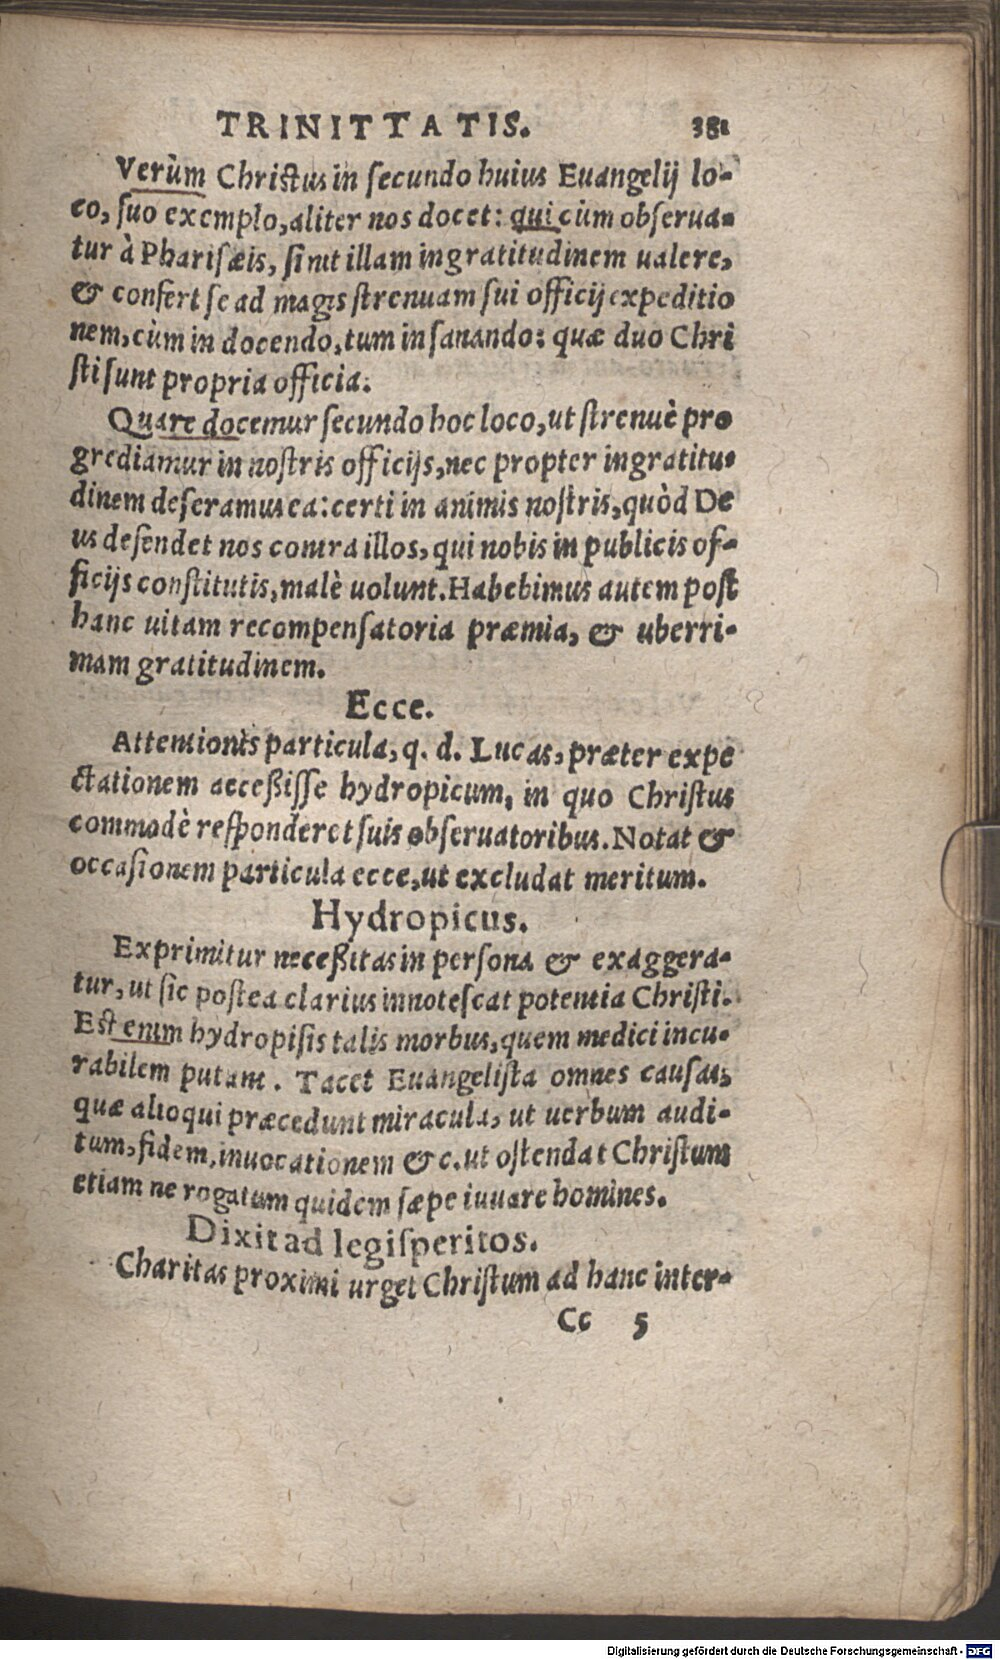 TRINITTATIS. 381
Verùm Christus in secundo huius Euangelij lo-
co, suo exemplo, aliter nos docet: qui cùm obserua-
tur à Pharisæis, sinit illam ingratitudinem ualere,
& confert se ad magis strenuam sui officij expeditio
nem, cùm in docendo, tum in sanando: quæ duo Chri
sti sunt propria officia.
Quare docemur secundo hoc loco, ut strenuè pro
grediamur in nostris officijs, nec propter ingratitu-
dinem deseramus ea: certi in animis nostris, quòd De
us defendet nos contra illos, qui nobis in publicis of-
ficijs constitutis, malè uolunt. Habebimus autem post
hanc uitam recompensatoria præmia, & uberri-
mam gratitudinem.
Ecce.
Attentionis particula, q. d. Lucas, præter expe
ctationem acceßisse hydropicum, in quo Christus
commodè responderet suis obseruatoribus. Notat &
occasionem particula ecce, ut excludat meritum.
Hydropicus.
Exprimitur neceßitas in persona & exaggera-
tur, ut sic postea clarius innotescat potentia Christi.
Est enim hydropisis talis morbus, quem medici incu-
rabilem putant. Tacet Euangelista omnes causas,
quæ alioqui præcedunt miracula, ut uerbum audi-
tum, fidem, inuocationem &c. ut ostendat Christum
etiam ne rogatum quidem sæpe iuuare homines.
Dixit ad legisperitos.
Charitas proximi urget Christum ad hanc inter-
Cc 5
Digitalisierung gefördert durch die Deutsche Forschungsgemeinschaft - DFG